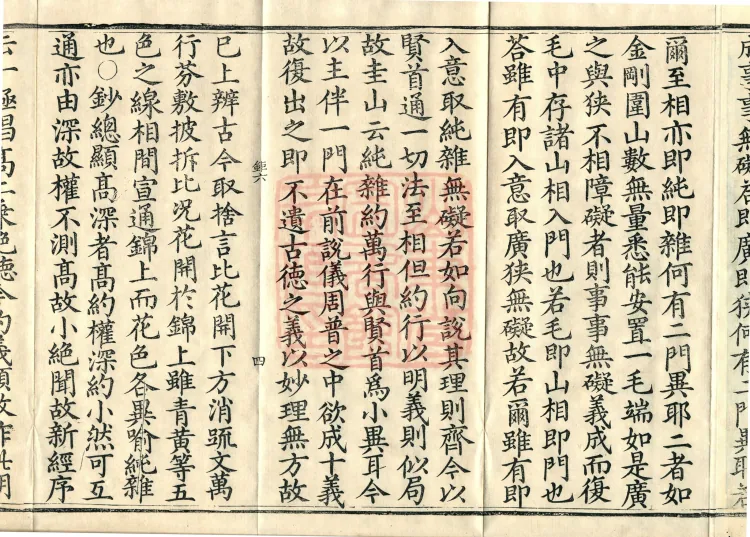 事事無礙若即廣即狹何有二門異耶
爾至相亦即純即雜何有二門異耶二者如
金剛圍山數無量悉能安置一毛端如是廣
之與狹不相障礙者則事事無礙義成而復
毛中存諸山相入門也若毛即山相即門也
荅雖有即入意取廣狹無礙故若爾雖有即
入意取純雜無礙若如向說其理則齊今以
賢首通一切法至相但約行以明義則似局
故圭山云純雜約萬行與賢首爲小異耳今
以主伴一門在前說儀周普之中欲成十義
故復出之即不遺古德之義以妙理無方故
鉅六 四
已上辨古今取捨言比花開下方消疏文萬
行芬敷披拆比况花開於錦上雖青黃等五
色之線相間宣通錦上而花色各異喻純雜
也○鈔總顯髙深者髙約權深約小然可互
通亦由深故權不測髙故小絶聞故新經序
云一極唱髙二乘絶德今約義順故作此明